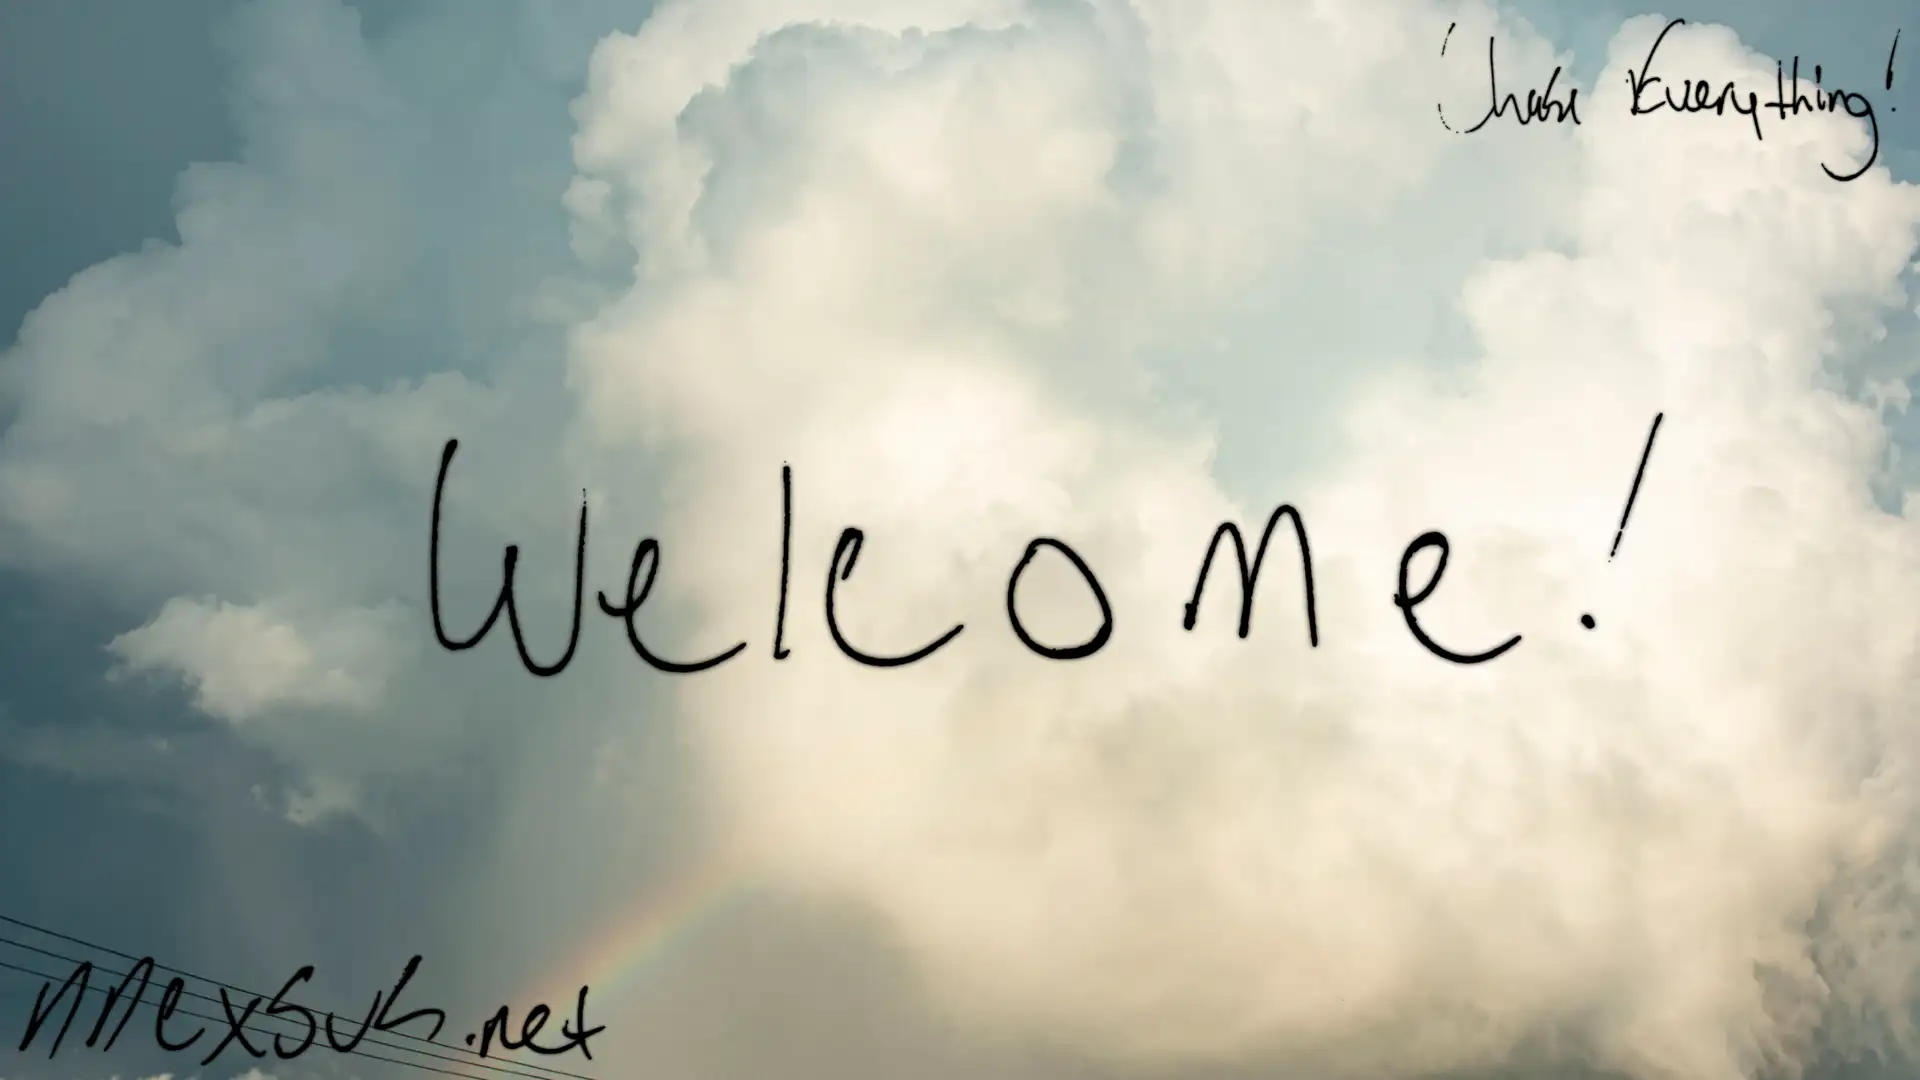 Chase Everything!
Welcome!
nnexsus.net